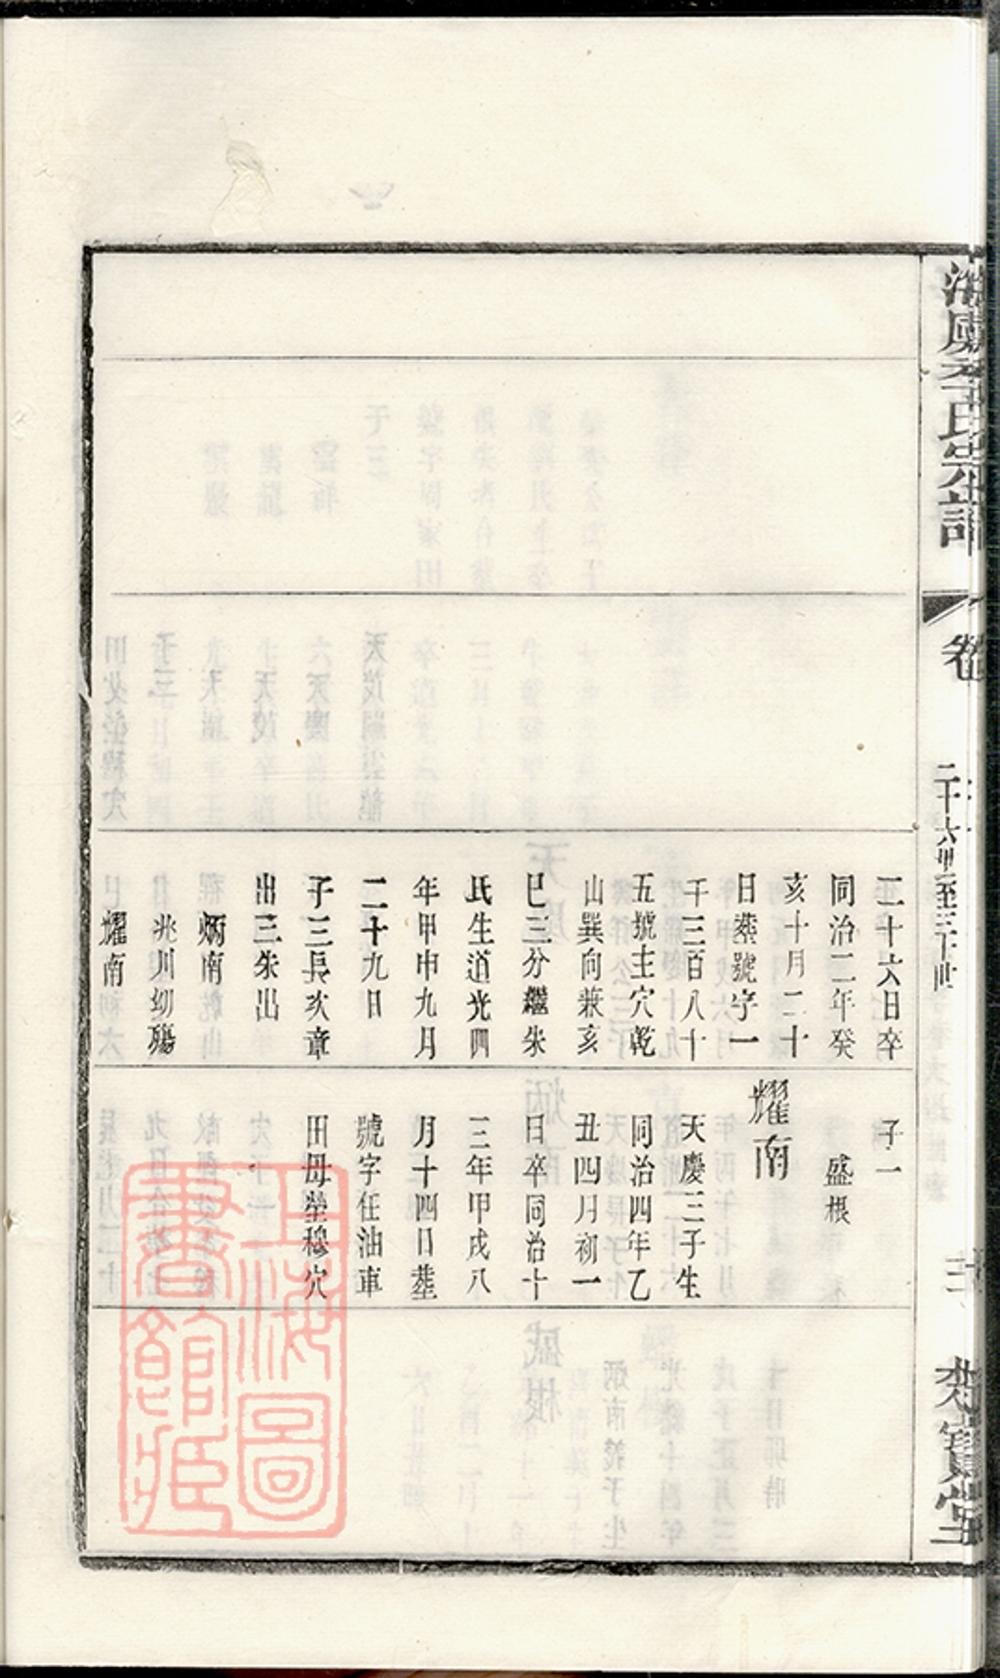 李氏宗譜
卷
二十六世至三十世
寶堂
二十六日卒
同治二年癸
亥十月二十
日葬號字一
千三百八十
五號主穴乾
山巽向兼亥
巳三分繼朱
氏生道光四
年甲申九月
二十九日
子三長次章
出三朱出
炳南
洮川幼殤
耀南
子一
盛根
耀南
天慶三子生
同治四年乙
丑四月初一
日卒同治十
三年甲戌八
月十四日塟
號字任油車
田母塋穆穴
上海圖
書館藏